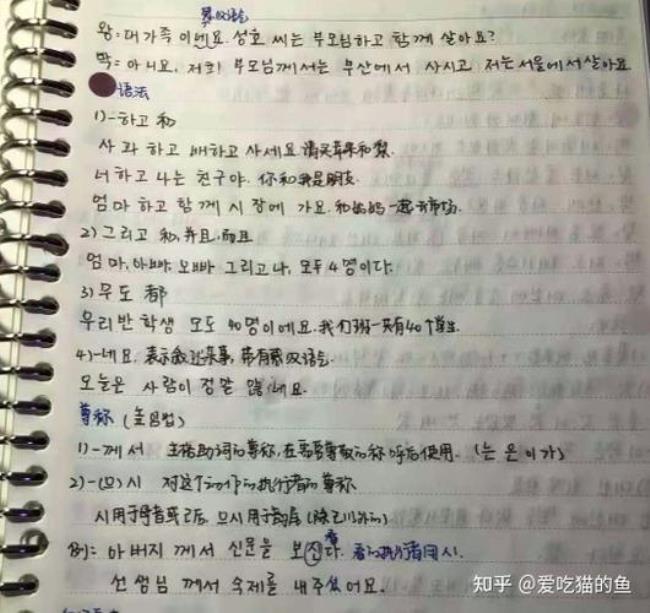 感叹语气
왕: 대가족 이네요. 성호 씨는 부모님하고 함께 살아요?
막: 아니요, 저희 부모님께서는 부산에서 사시고 저는 서울에서 살아요
语法
1)-하고 和
사과 하고 배하고 사세요 请买苹果和梨.
너하고 나는 친구야. 你和我是朋友.
엄마 하고 함께 시장에 가요. 和妈妈一起去市场.
2) 그리고 和, 并且, 而且
엄마, 아빠, 오빠 그리고 나, 모두 4명이다.
3) 두도 都
우리반 학생 모도 40명이에요. 我们班一共有40个学生.
4)-네요. 表示叙述某事, 带有感叹语气
오늘은 사람이 정말 많네요.
尊称
1)-께서 主格助词的尊称, 在需要尊敬的称呼后使用. (는 은 이 가)
2)-(으)시 对这个动作的执行者的尊称
시用于母音或ㄹ后, 으시用于
例: 아버지 께서 신문을 보신다. 看的执行者用시.
선생님 께서 숙제를 내주셨어요.
知乎 @爱吃猫的鱼